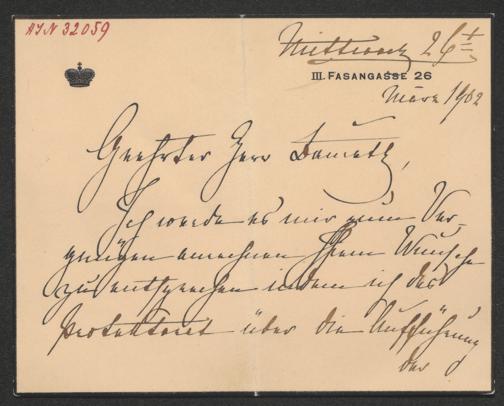 AIN 32059
Mittwoch 26t
III. FASANGASSE 26
März 1902
Geehrter Herr
Ich werde es mir zum Ver-
gnügen anrechnen Ihrem Wunsche
zu entsprechen indem ich das
Protektorat über die Aufführung
der